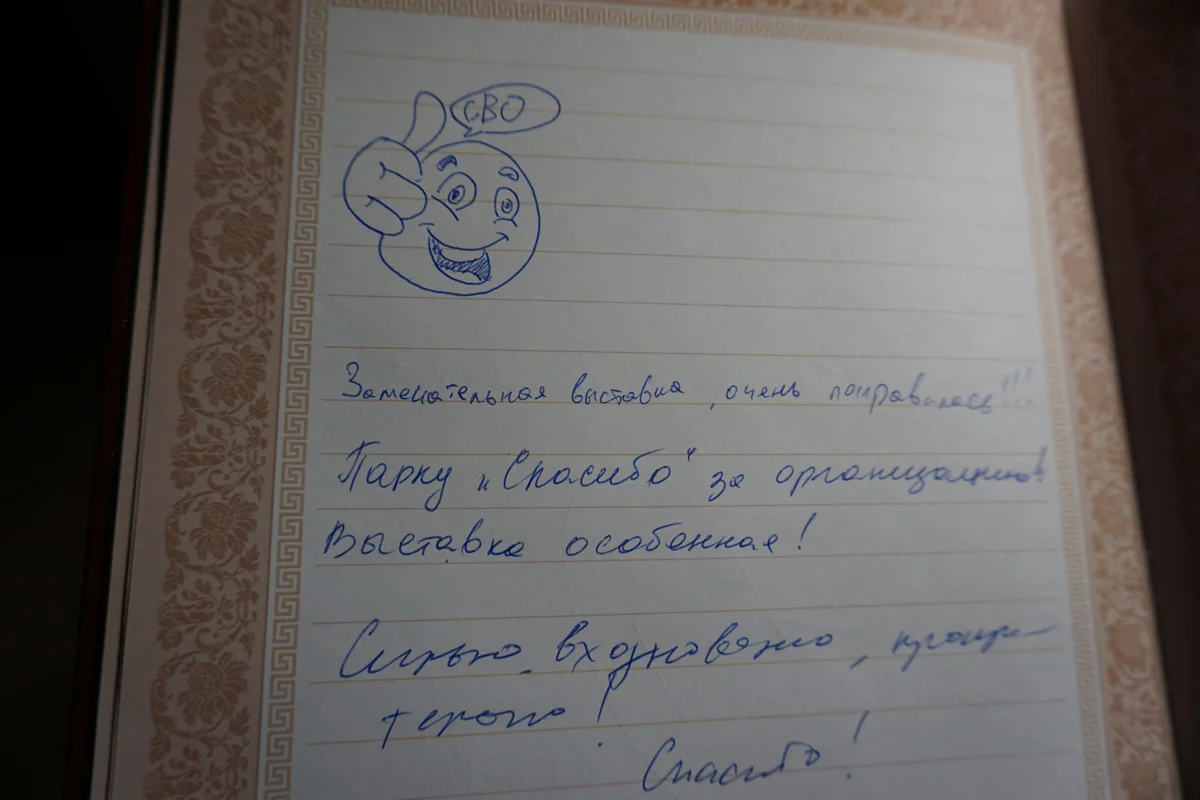 СВО
Замечательная выставка, очень понравилась!!!
Парку "Спасибо" за организацию!
Выставка особенная!
вдохновенно,
Спасибо!